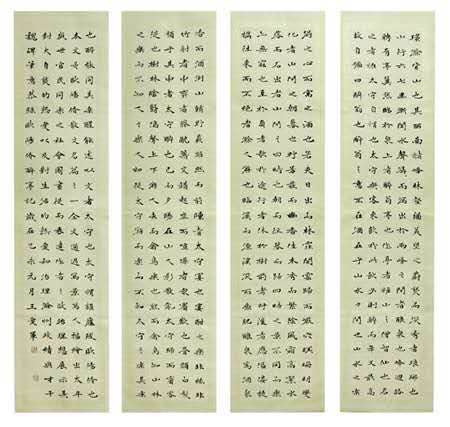 環滁皆山也其西南諸峰林壑尤美望之蔚然而深秀者琅琊也
山行六七里漸聞水聲潺潺而瀉出於兩峰之間者釀泉也峰迴路
轉有亭翼然臨於泉上者醉翁亭也作亭者誰山之僧智仙也名
之者誰太守自謂也太守與客來飲於此飲少輒醉而年又最高
故自號曰醉翁也醉翁之意不在酒在乎山水之間也山水之樂
得之心而寓之酒也若夫日出而林霏開雲歸而巖穴暝晦明變
化者山間之朝暮也野芳發而幽香佳木秀而繁陰風霜高潔水
落而石出者山間之四時也朝而往暮而歸四時之景不同而樂
亦無窮也至於負者歌於途行者休於樹前者呼後者應傴僂提
攜往來而不絕者滁人遊也臨溪而漁溪深而魚肥釀泉為酒泉
香而酒洌山餚野蔌雜然而前陳者太守宴也宴酣之樂非絲非
竹射者中弈者勝觥籌交錯起坐而諠譁者眾賓歡也蒼顏白髮
頹乎其中者太守醉也已而夕陽在山人影散亂太守歸而賓客
從也樹林陰翳鳴聲上下遊人去而禽鳥樂也然而禽鳥知山林
之樂而不知人之樂人知從太守遊而樂而不知太守之樂其樂
也醉能同其樂醒能述以文者太守也太守謂誰廬陵歐陽修也
本文是歐陽修散文名篇之一全文通過寫景寫人描繪出太平
盛世官民同樂之社會圖畫表達作者政治理想展示其
魏碑筆意恭錄歐陽修醉翁亭記歲在己亥元月王愛軍